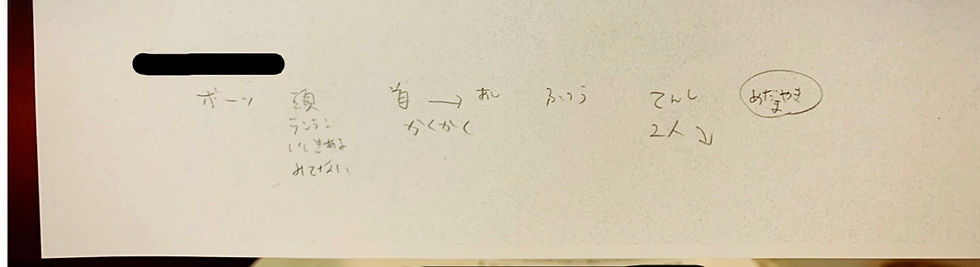 ボーン 頭 首 → あし ふつう てんし めだまやき
ランラン かくかく 2人 ↘
いしきある
みてない